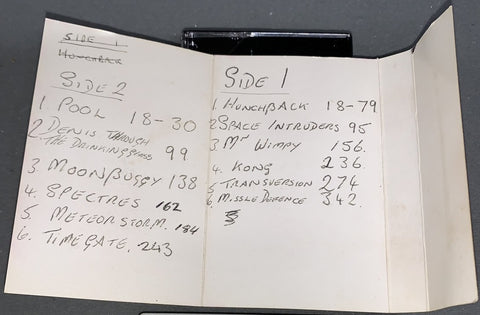 SIDE 1
HUNCHBACK
SIDE 2
1 POOL 18-30
2 DENIS THROUGH
THE DRINKING GLASS 99
3 MOONBUGGY 138
4. SPECTRES 162
5 METEOR STORM. 184
6. TIMEGATE. 243
SIDE 1
1 HUNCHBACK 18-79
2 SPACE INTRUDERS 95
3 Mr WIMPY 156.
4. KONG 236.
5 TRANSVERSION 274
6 MISSLE DEFENCE 342.